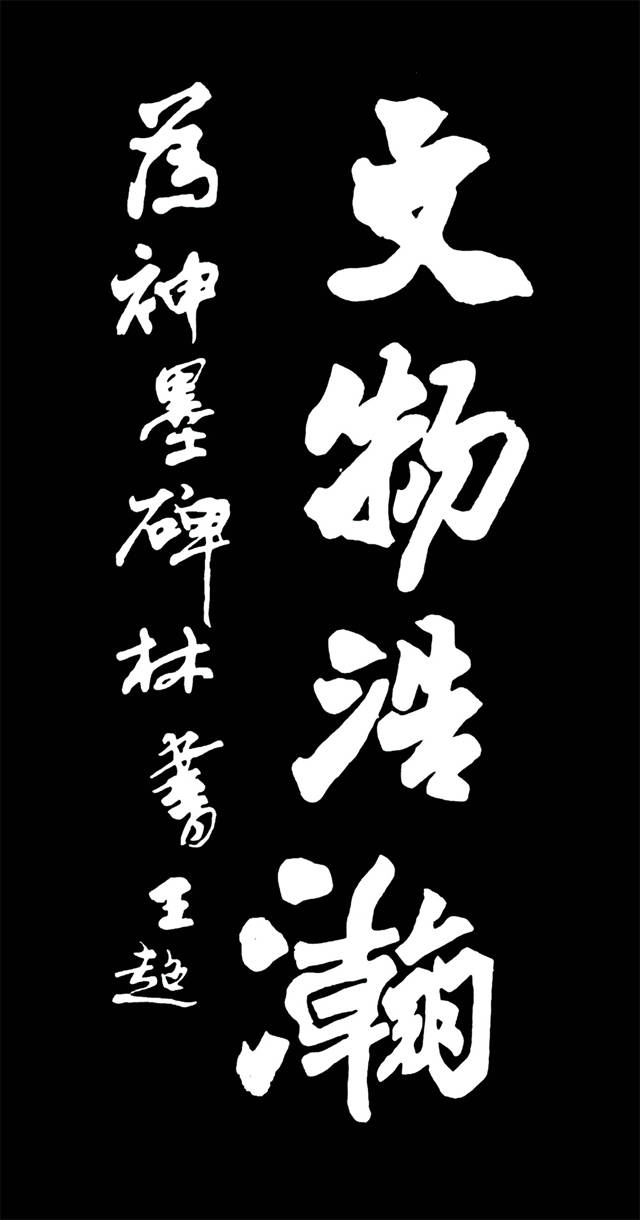 文物浩瀚
为神墨碑林书王超